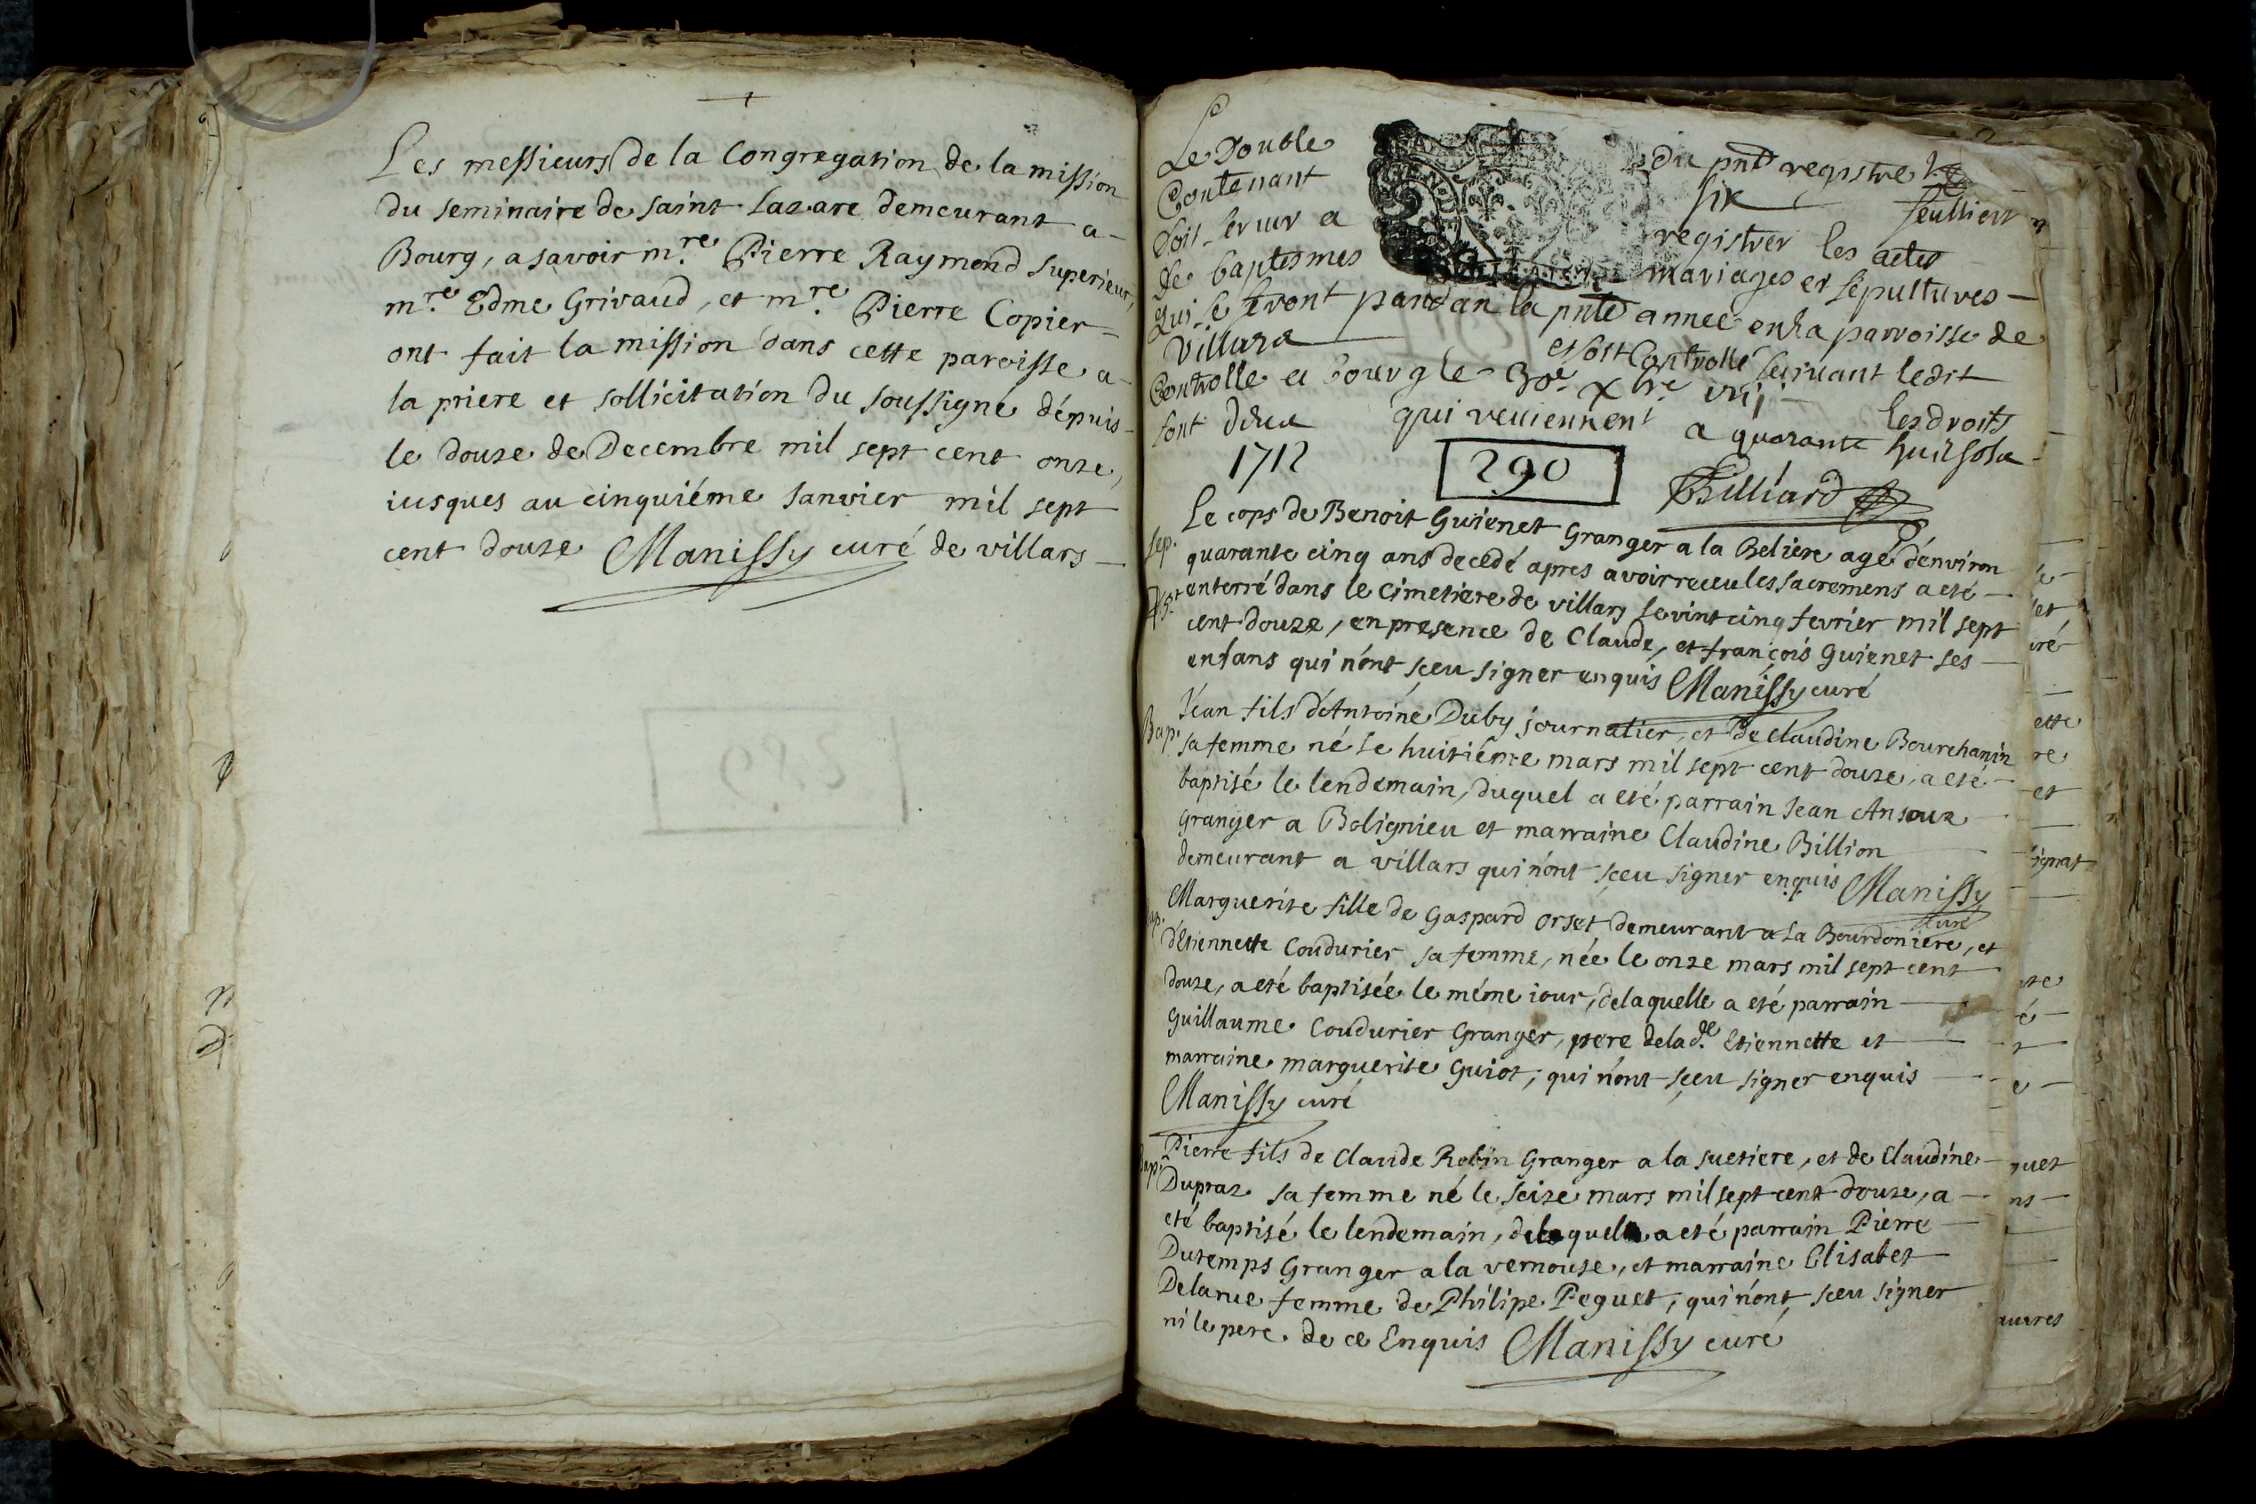 Les messieurs de la Congregation de la mission
du seminaire de saint Lazare demeurant a
Bourg, a savoir m.re Pierre Raymond superieur,
m.re Edme Grivaud, et m.re Pierre Copier
ont fait la mission dans cette paroisse a
la priere et sollicitation du soussigné dépuis
le douze de Decembre mil sept cent onze,
iusques au cinquiéme Janvier mil sept
cent douze Manissy curé de villars
Le Double du pnt registre
Contenant six feulliets
Doit servir a registrer les actes
de baptesmes mariages et sepultures
qui se feront pandan la pnte année en la parroisse de
Villars et soit Controllé suivant ledit
Controlle a Bourg le 30e xbre
les droits
sont deux qui reviennent a quarante huit sols
1712
290
Billiard
sep. Le cops de Benoit Guienet Granger a la Beliere agé d'environ
quarante cinq ans decedé apres avoir receu les sacremens a eté
enterré dans le cimetiere de villars le vint cinq fevrier mil sept
cent douze, en presence de Claude, et françois Guienet ses
enfans qui n'ont sçeu signer enquis Manissy curé
Bap. Jean fils d'Antoine Duby journalier, et de Claudine Bourchanin
sa femme né le huitiéme mars mil sept cent douze, a eté
baptisé le lendemain, duquel a eté parrain Jean Ansoux
Granger a Bolignieu et marraine Claudine Billion
demeurant a villars qui n'ont sçeu signer enquis Manissy
curé
Marguerite fille de Gaspard orset demeurant a la Bourdoniere, et
d'Etiennette Coudurier sa femme, née le onze mars mil sept cent
douze, a eté baptisée le méme iour, de laquelle a eté parrain
Guillaume Coudurier Granger, pere de lad.e Etiennette et
marraine marguerite Guiot, qui n'ont sçeu signer enquis
Manissy curé
Bap. Pierre fils de Claude Robin Granger a la suetiere, et de Claudine
Dupraz sa femme né le seize mars mil sept cent douze, a
eté baptisé le lendemain, duquel a eté parrain Pierre
Dutemps Granger a la vernouse, et marraine Elisabet
Delarue femme de Philipe Peguet, qui n'ont sceu signer
ni le pere de ce Enquis Manissy curé